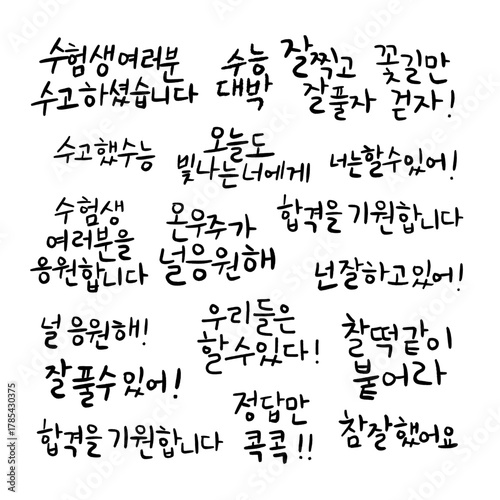 수험생여러분
수고하셨습니다
수능
대박
잘찍고
잘풀자
꽃길만
걷자!
수고했수능
오늘도
빛나는너에게
너는할수있어!
수험생
여러분을
응원합니다
온우주가
널응원해
합격을기원합니다
넌잘하고있어!
널응원해!
우리들은
할수있다!
찰떡같이
붙어라
잘풀수있어!
정답만
콕콕!!
합격을기원합니다
참잘했어요
Adobe Stock | #1785430375